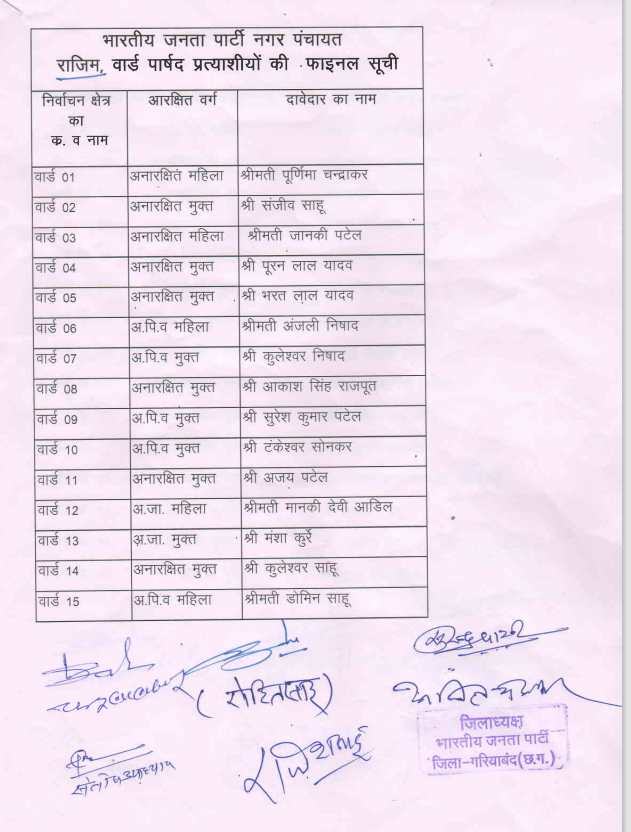 भारतीय जनता पार्टी नगर पंचायत
राजिम, वार्ड पार्षद प्रत्याशीयों की फाइनल सूची
निर्वाचन क्षेत्र का क. व नाम आरक्षित वर्ग दावेदार का नाम
वार्ड 01 अनारक्षित महिला श्रीमती पूर्णिमा चन्द्राकर
वार्ड 02 अनारक्षित मुक्त श्री संजीव साहू
वार्ड 03 अनारक्षित महिला श्रीमती जानकी पटेल
वार्ड 04 अनारक्षित मुक्त श्री पूरन लाल यादव
वार्ड 05 अनारक्षित मुक्त श्री भरत लाल यादव
वार्ड 06 अ.पि.व महिला श्रीमती अंजली निषाद
वार्ड 07 अ.पि.व मुक्त श्री कुलेश्वर निषाद
वार्ड 08 अनारक्षित मुक्त श्री आकाश सिंह राजपूत
वार्ड 09 अ.पि.व मुक्त श्री सुरेश कुमार पटेल
वार्ड 10 अ.पि.व मुक्त श्री टंकेश्वर सोनकर
वार्ड 11 अनारक्षित मुक्त श्री अजय पटेल
वार्ड 12 अ.जा. महिला श्रीमती मानकी देवी आडिल
वार्ड 13 अ.जा. मुक्त श्री मंशा कुर्रे
वार्ड 14 अनारक्षित मुक्त श्री कुलेश्वर साहू
वार्ड 15 अ.पि.व महिला श्रीमती डोमिन साहू
जिलाध्यक्ष
भारतीय जनता पार्टी
जिला-गरियाबंद(छ.ग.)